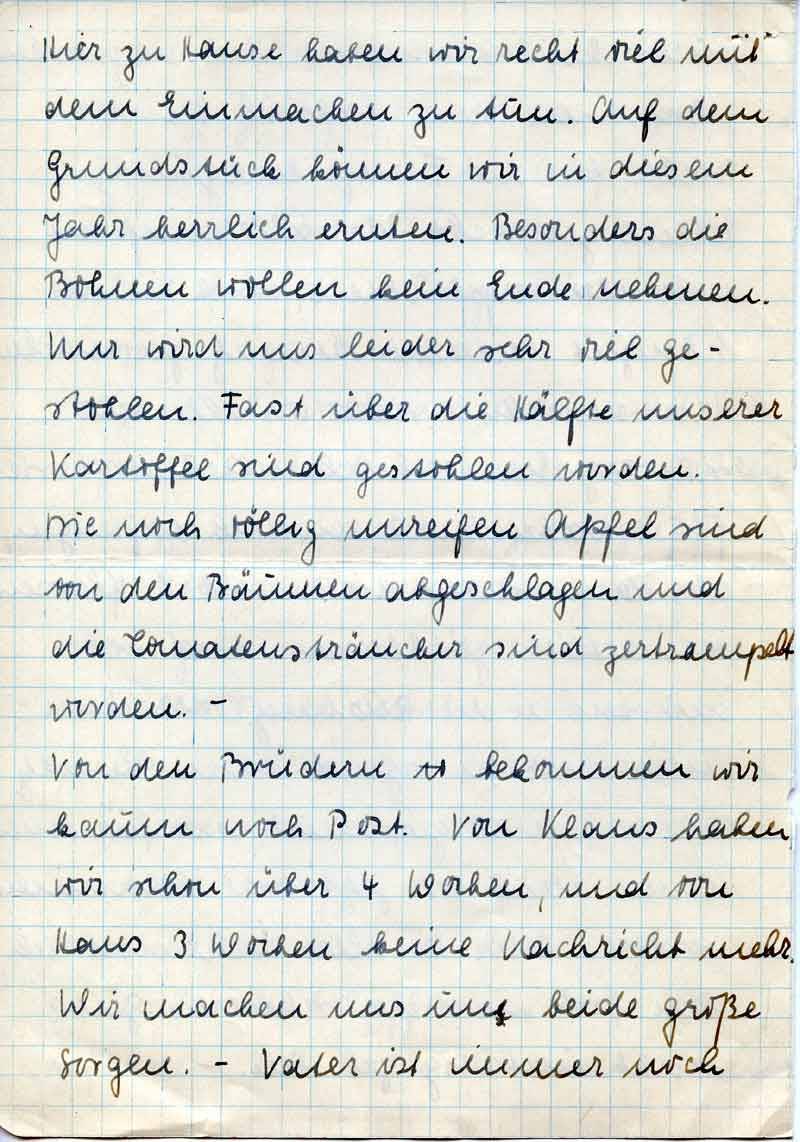 Hier zu Hause haben wir recht viel mit
dem Einmachen zu tun. Auf dem
Grundstück können wir in diesem
Jahr herrlich ernten. Besonders die
Bohnen wollen kein Ende nehmen.
Nur wird uns leider sehr viel ge-
stohlen. Fast über die Hälfte unserer
Kartoffel sind gestohlen worden.
Die noch völlig unreifen Äpfel sind
von den Bäumen abgeschlagen und
die Tomatensträucher sind zertrampelt
worden. -
Von den Brüdern bekommen wir
kaum noch Post. Von Klaus haben
wir schon über 4 Wochen, und von
Hans 3 Wochen keine Nachricht mehr.
Wir machen uns um beide große
Sorgen. - Vater ist immer noch